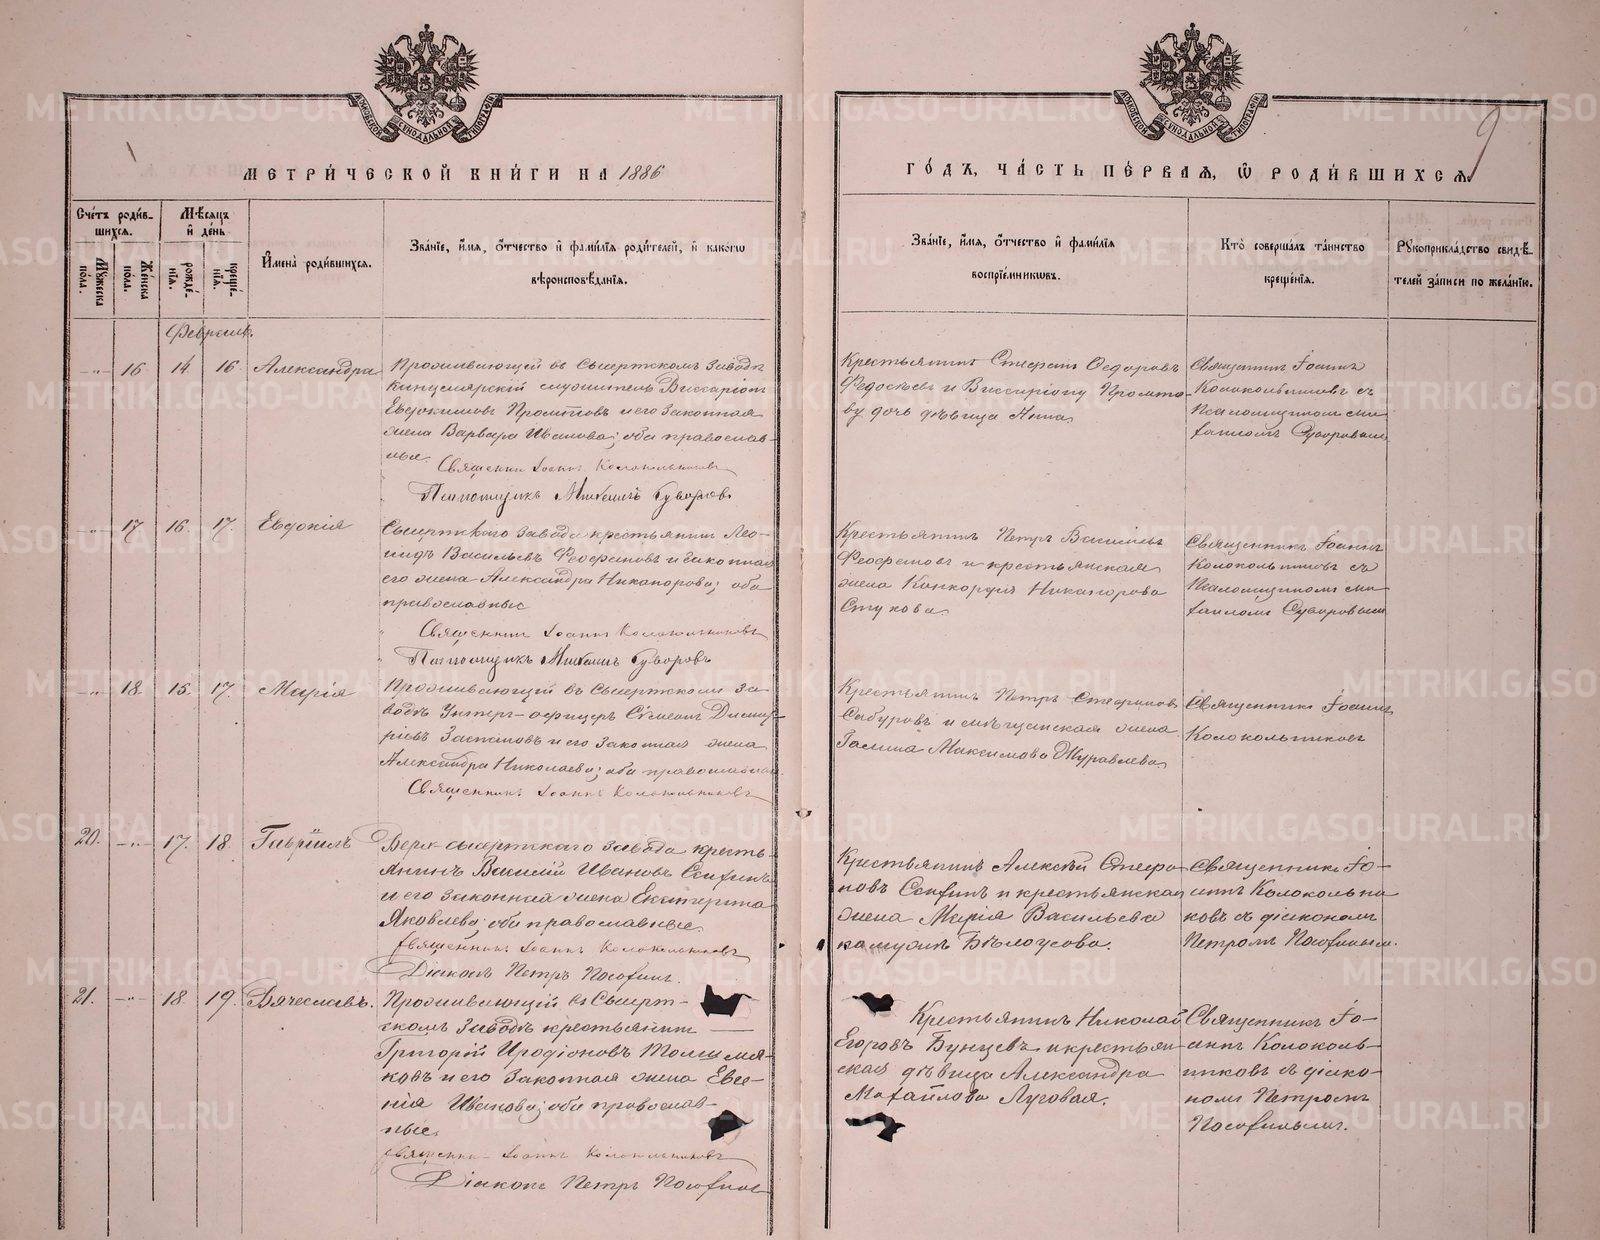 МОСКОВСКОЙ СѴНОДАЛЬНОЙ ТИПОГРАФІИ
МОСКОВСКОЙ СѴНОДАЛЬНОЙ ТИПОГРАФІИ
9
МЕТРИ́ЧЕСКОЙ КНИ́ГИ НА 1886
ГО́ДЪ, ЧА́СТЬ ПЕ́РВАѦ, Ѽ РОДИ́ВШИХСѦ.
Сче́тъ роди́вшихсѧ.
Мѣ́сѧцъ и҆ де́нь
И҆мена̀ роди́вшихсѧ.
Зва́ніе, и҆́мѧ, ѻ҆́тчество и҆ фами́лїѧ роди́телей, и҆ како́гѡ вѣроисповѣ́данїѧ.
Мꙋ́жеска по́ла.
Же́нска по́ла.
рожде́нїѧ.
креще́нїѧ.
Зва́ніе, и҆́мѧ, ѻ҆́тчество и҆ фами́лїѧ воспрїе́мникѡвъ.
Кто̀ соверша́лъ та́инство креще́нїѧ.
Рꙋкоприкла́дство свидѣ́телей за́писи по жела́нїю.
Февраль.
16 14 16 Александра
Проживающій въ Сысертскомъ заводѣ
канцелярскій служитель Виссаріонъ
Евдокимовъ и его законная
жена Варвара Иванова; оба православ-
ные.
Священникъ Іоаннъ Колокольниковъ
Псаломщикъ Михаилъ Суворовъ
Крестьянинъ Стефанъ Ѳедоровъ
Федосѣевъ и Виссаріону
ву дочь дѣвица Анна
Священникъ Іоаннъ
Колокольниковъ съ
Псаломщикомъ Ми-
хаиломъ Суворовымъ
17 16. 17. Евдокія
Сысертскаго завода крестьянинъ Лео-
нидъ Васильевъ Феофановъ и законная
его жена Александра Никанорова; оба
православные
Священникъ Іоаннъ Колокольниковъ
Псаломщикъ Михаилъ Суворовъ
Крестьянинъ Петръ Васильевъ
Феофановъ и крестьянская
жена Конкордія Никанорова
Стукова.
Священникъ Іоаннъ
Колокольниковъ съ
Псаломщикомъ Ми-
хаиломъ Суворовымъ
18. 15. 17. Марія
Проживающій въ Сысертскомъ за-
водѣ Унтеръ-офицеръ Сѵмеонъ Димит-
ріевъ и его законная жена
Александра Николаева; оба православные.
Священникъ Іоаннъ Колокольниковъ
Крестьянинъ Петръ Стефановъ
Сабуровъ и мѣщанская жена
Галина Максимова Журавлева
Священникъ Іоаннъ
Колокольниковъ
20. 17. 18. Гавріилъ
Верх-сысертскаго завода кресть-
янинъ Василій Ивановъ
и его законная жена Екатерина
Яковлева; оба православные.
Священникъ Іоаннъ Колокольниковъ
Діаконъ Петръ
Крестьянинъ Алексѣй Стефа-
новъ и крестьянская
жена Марія Васильева
Бѣлоусова.
Священникъ Іо-
аннъ Колокольни-
ковъ съ діакономъ
Петромъ
21. 18. 19. Вячеславъ.
Проживающій въ Сысерт-
скомъ заводѣ крестьянинъ
Григорій Иродіоновъ Толстия-
ковъ и его законная жена Евге-
нія Иванова; оба православ-
ные.
Священникъ Іоаннъ Колокольниковъ
Діаконъ Петръ
Крестьянинъ Николай
Егоровъ Бунцевъ и крестьян-
ская дѣвица Александра
Михайлова Луговая.
Священникъ Іо-
аннъ Колоколь-
никовъ съ діако-
номъ Петромъ
METRIKI.GASO-URAL.RU